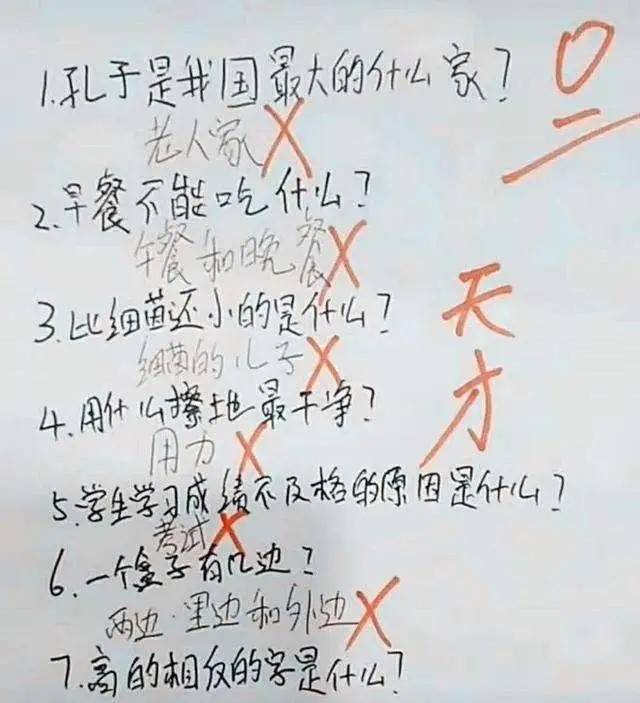 1.孔子是我国最大的什么家？
老人家
2.早餐不能吃什么？
午餐和晚餐
3.比细菌还小的是什么？
细菌的儿子
4.用什么擦地最干净？
用力
5.学生学习成绩不及格的原因是什么？
考试
6.一个盒子有几边？
两边·里边和外边
7.高的相反的字是什么？
0
天才